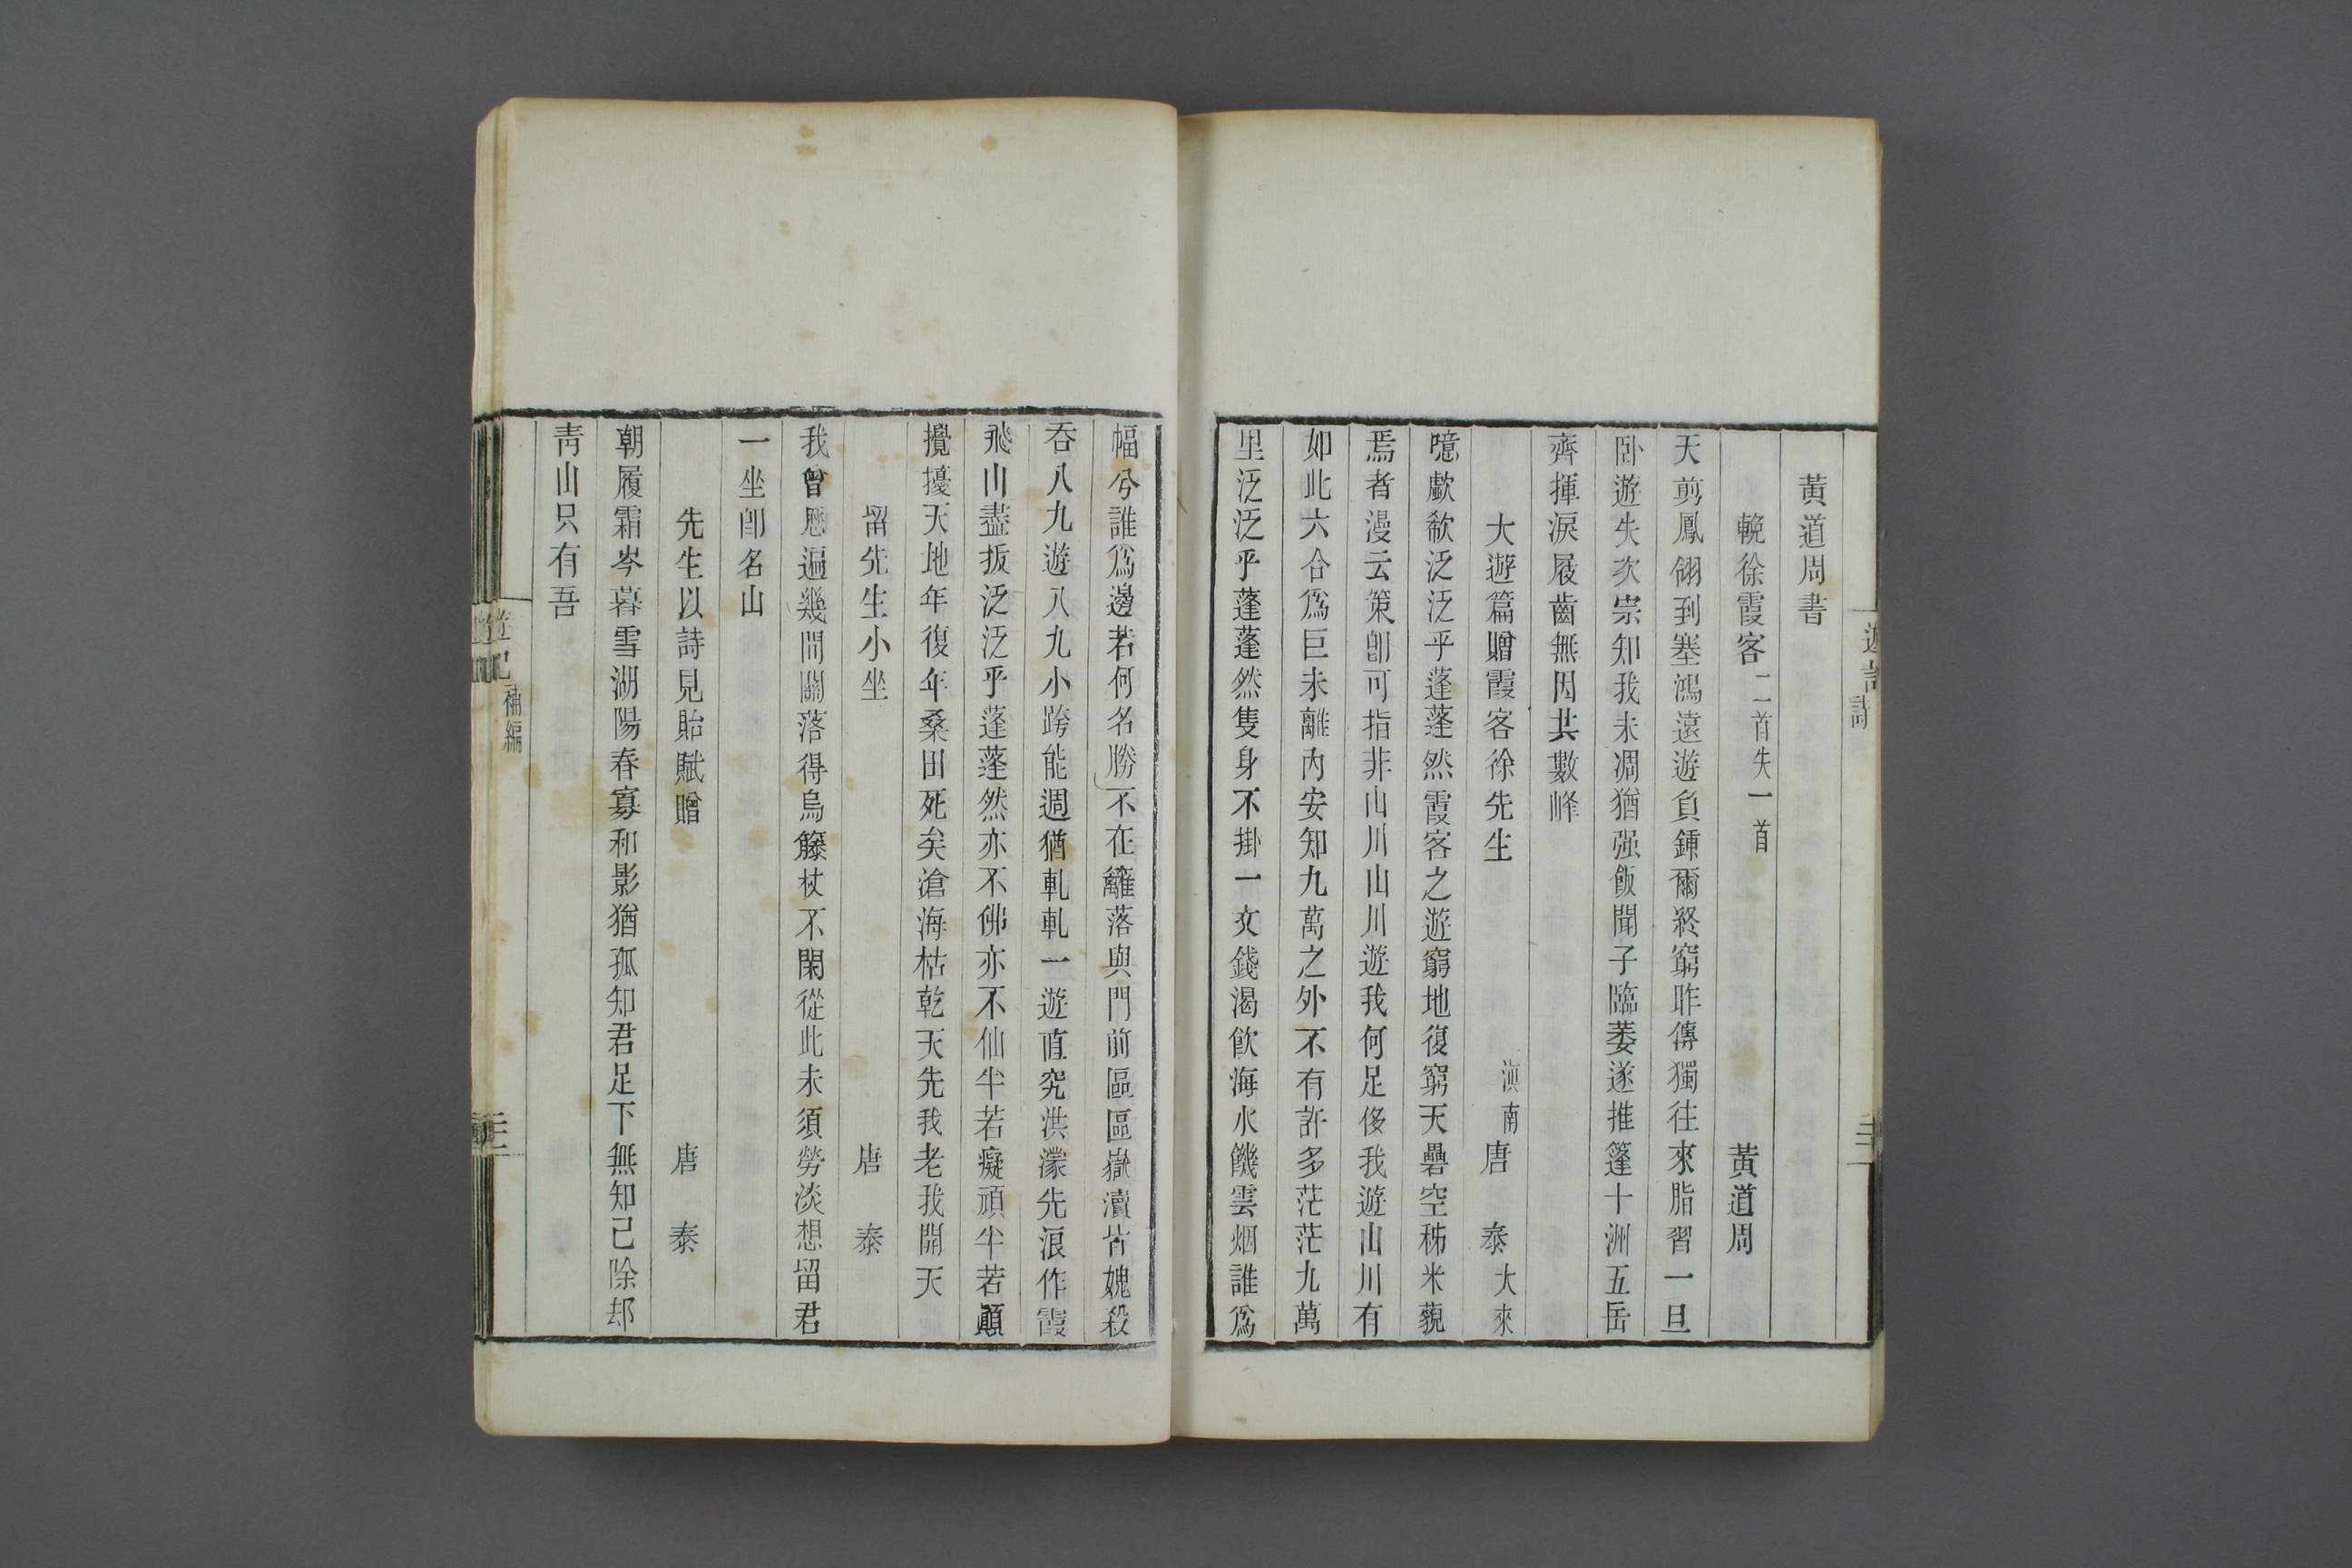 黃道周書
輓徐霞客 二首失一首 黃道周
天剪鳳翎到塞鴻遠遊負鍾爾終窮昨傳獨往來脂習一旦
卧遊失次宗知我未凋猶强飯聞子臨萎遂推篷十洲五岳
齊揮淚屐齒無因共數峰
大遊篇贈霞客徐先生 滇南 唐 泰 大來
噫歔欷泛泛乎蓬蓬然霞客之遊窮地復窮天礨空稊米藐
焉者漫云策卽可指非山川山川遊我何足侈我遊山川有
如此六合爲巨未離內安知九萬之外不有許多茫茫九萬
里泛泛乎蓬蓬然隻身不掛一文錢渴飮海水饑雲烟誰爲
幅兮誰爲邊若何名勝不在籬落與門前區區嶽瀆皆媿殺
吞八九遊八九小跨能週猶軋軋一遊直究洪濛先浪作霞
飛山盡扳泛泛乎蓬蓬然亦不佛亦不仙半若癡頑半若顚
攪擾天地年復年桑田死矣滄海枯乾天先我老我開天
留先生小坐 唐 泰
我曾歷遍幾間關落得烏籐杖不閑從此未須勞淡想留君
一坐卽名山
先生以詩見貽賦贈 唐 泰
朝履霜岑暮雪湖陽春寡和影猶孤知君足下無知己除却
靑山只有吾
遊記 補編